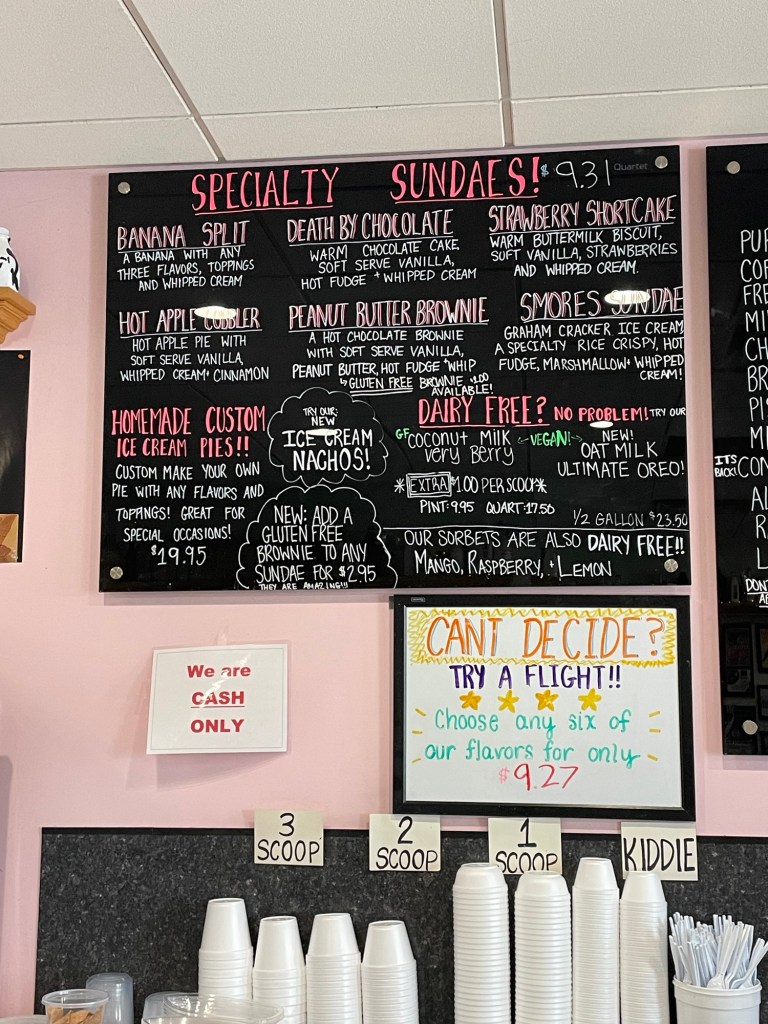 SPECIALTY SUNDAES! $9.31
Quartet
BANANA SPLIT
A BANANA WITH ANY
THREE FLAVORS, TOPPINGS
AND WHIPPED CREAM
DEATH BY CHOCOLATE
WARM CHOCOLATE CAKE
SOFT SERVE VANILLA,
HOT FUDGE + WHIPPED CREAM
STRAWBERRY SHORTCAKE
WARM BUTTERMILK BISCUIT,
SOFT VANILLA, STRAWBERRIES
AND WHIPPED CREAM.
HOT APPLE COBBLER
HOT APPLE PIE WITH
SOFT SERVE VANILLA,
WHIPPED CREAM + CINNAMON
PEANUT BUTTER BROWNIE
A HOT CHOCOLATE BROWNIE
WITH SOFT SERVE VANILLA,
PEANUT BUTTER, HOT FUDGE + WHIP
GLUTEN FREE BROWNIE $1.00
AVAILABLE!
SMORES SUNDAE
GRAHAM CRACKER ICE CREAM
A SPECIALTY RICE CRISPY, HOT
FUDGE, MARSHMALLOW + WHIPPED
CREAM!
HOMEMADE CUSTOM
ICE CREAM PIES!!
CUSTOM MAKE YOUR OWN
PIE WITH ANY FLAVORS AND
TOPPINGS! GREAT FOR
SPECIAL OCCASIONS!
$19.95
TRY OUR:
NEW
ICE CREAM
NACHOS!
NEW: ADD A
GLUTEN FREE
BROWNIE TO ANY
SUNDAE FOR $2.95
THEY ARE AMAZING!!!
DAIRY FREE? NO PROBLEM! TRY OUR
GF coconut milk ←VEGAN!→ NEW!
very Berry OAT MILK
ULTIMATE OREO!
*EXTRA $1.00 PER SCOOP*
PINT: 9.95 QUART: 17.50
1/2 GALLON $23.50
OUR SORBETS ARE ALSO DAIRY FREE!!
MANGO, RASPBERRY, + LEMON
ITS
BACK!
We are
CASH
ONLY
CANT DECIDE?
TRY A FLIGHT!!
Choose any six of
our flavors for only
$9.27
3
SCOOP
2
SCOOP
1
SCOOP
KIDDIE